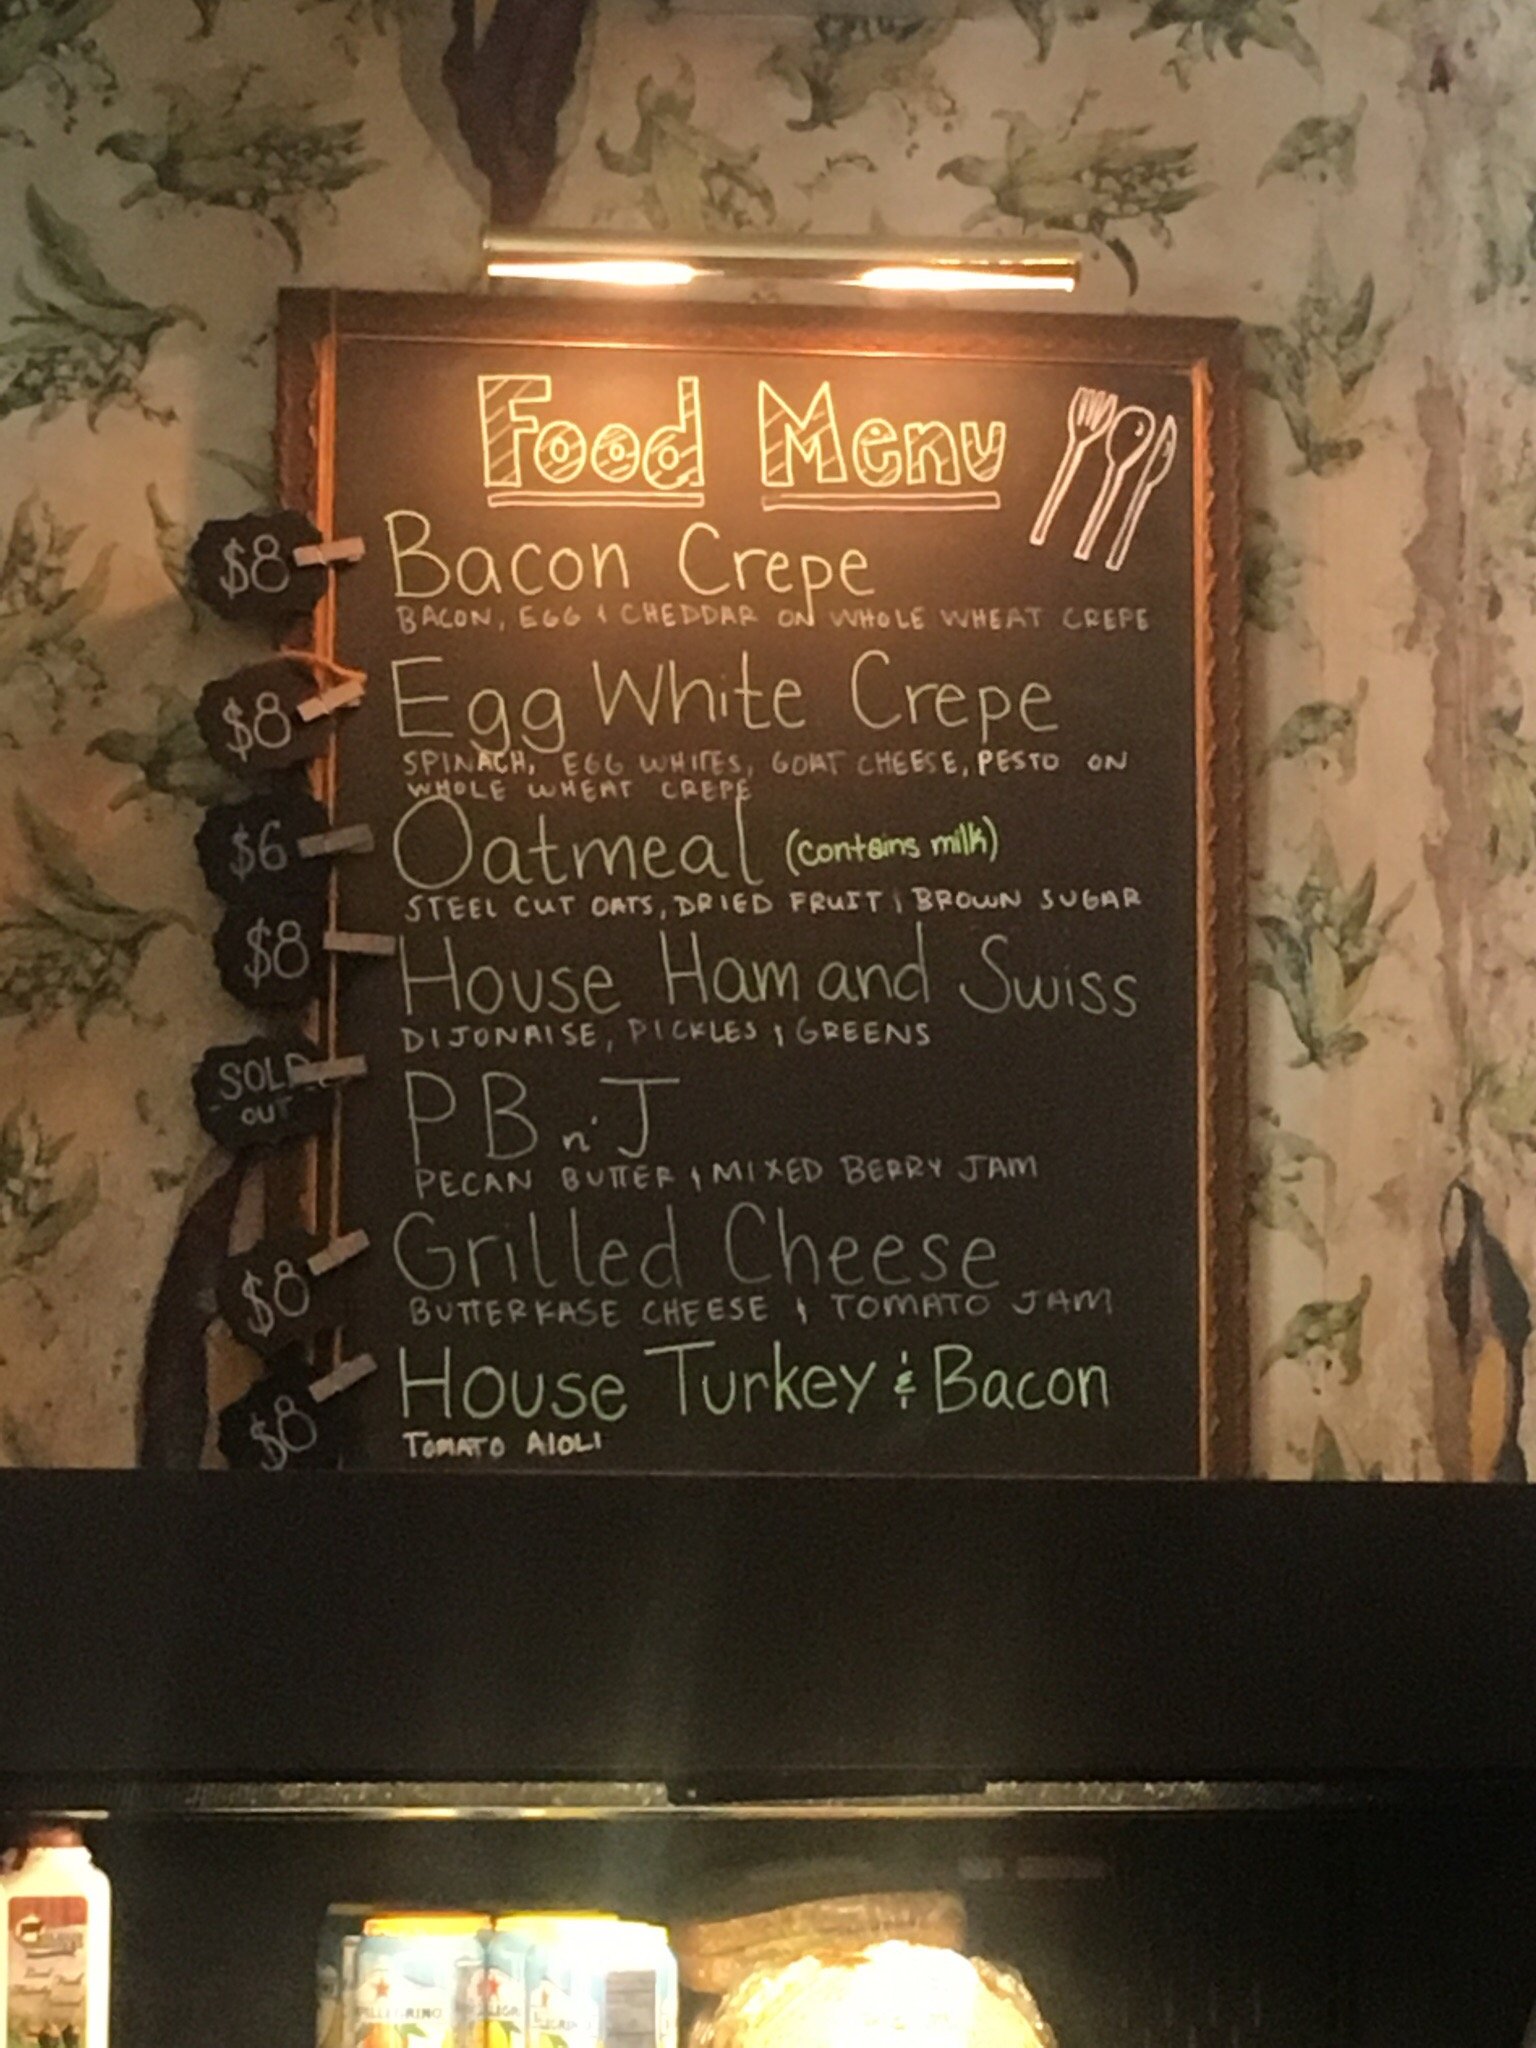 Food Menu
$8 Bacon Crepe
BACON, EGG & CHEDDAR ON WHOLE WHEAT CREPE
$8 Egg White Crepe
SPINACH, EGG WHITES, GOAT CHEESE, PESTO ON
WHOLE WHEAT CREPE
$6 Oatmeal (contains milk)
STEEL CUT OATS, DRIED FRUIT & BROWN SUGAR
$8 House Ham and Swiss
DIJONAISE, PICKLES & GREENS
SOLD
OUT
PB n' J
PECAN BUTTER & MIXED BERRY JAM
$8 Grilled Cheese
BUTTERKASE CHEESE & TOMATO JAM
$8 House Turkey & Bacon
TOMATO AIOLI
PELLEGRINO